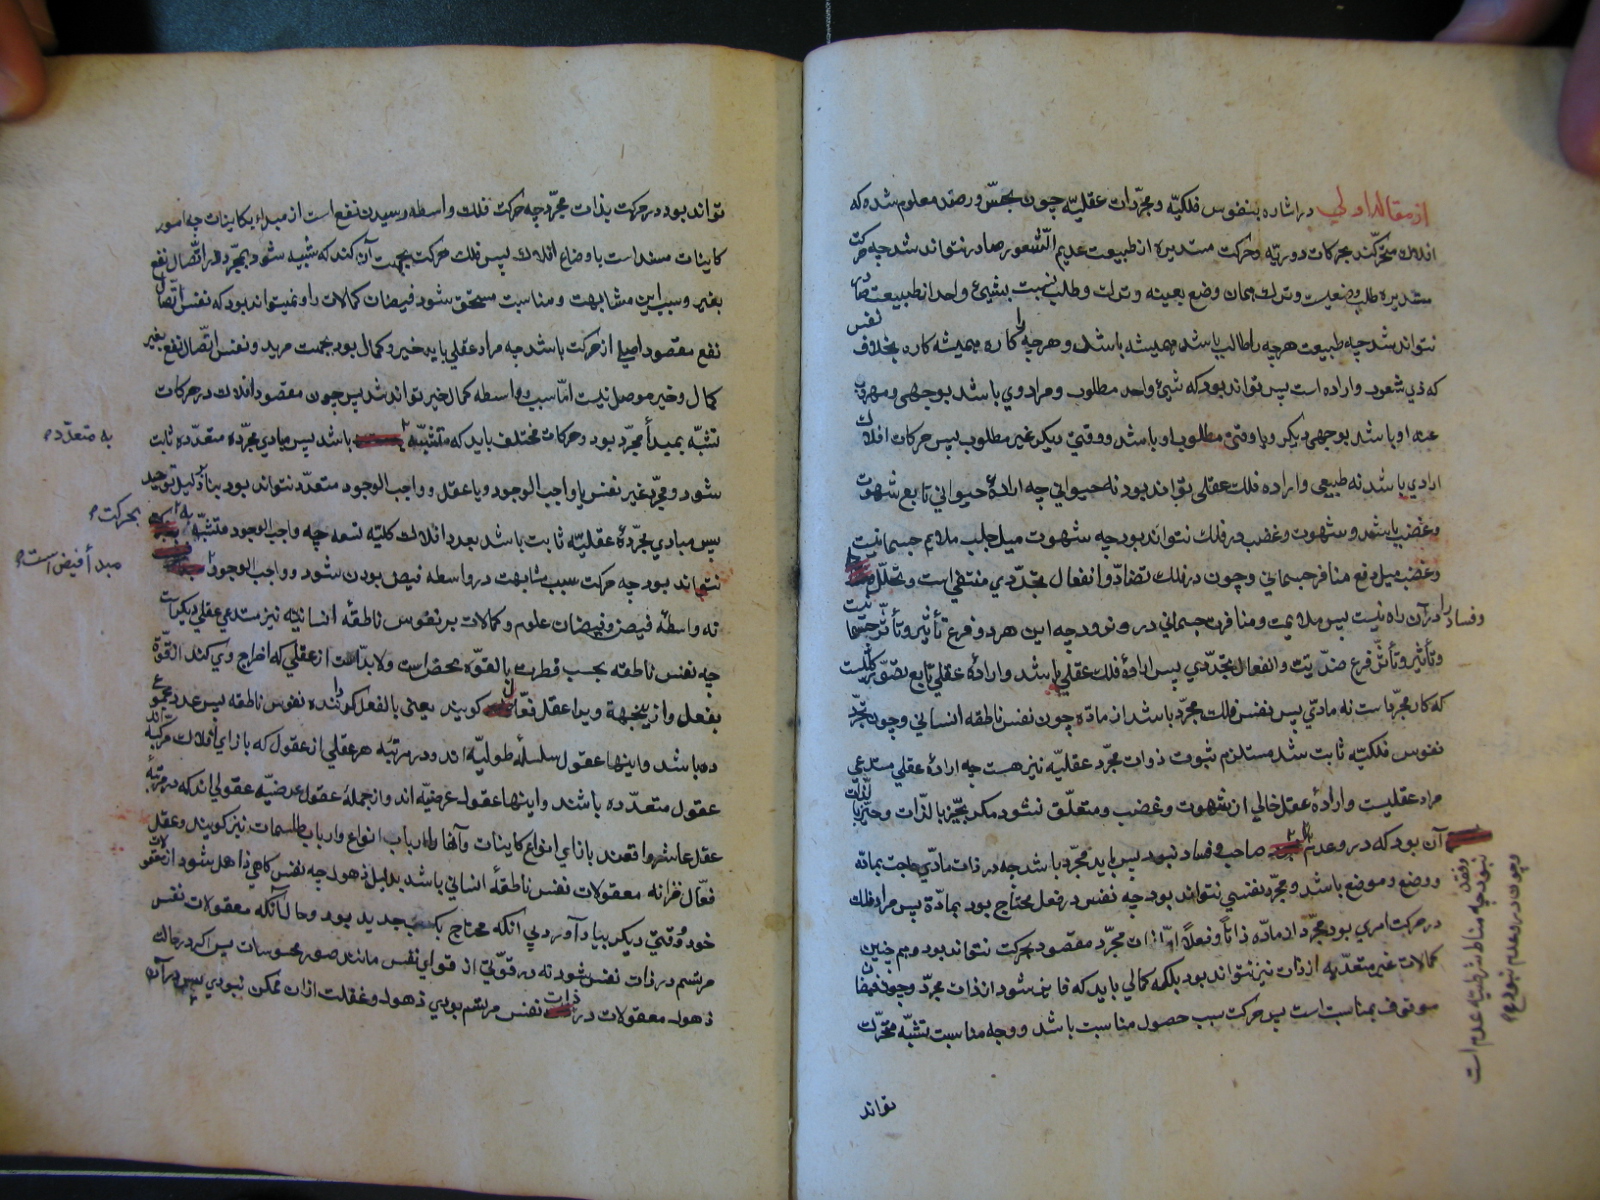 از مقاله اولی در اشاره بنفوس فلکیّه و مجرّدات عقلیّه چون بحسّ و رصد معلوم شده که
افلاک متحرّکند بحرکات دوریّه و حرکت مستدیره از طبیعت عدیم الشعور صادر نتواند شد چه حرکت
مستدیره طلب وضعیست و ترک همان وضع بعینه و ترک و طلب نسبت بشیئ واحد از طبیعت صادر
نتواند شد چه طبیعت هرچه را طالب باشد همیشه باشد و هرچه را کاره همیشه کاره بخلاف نفس
که ذی شعور و اراده است پس تواند بود که شیئ واحد مطلوب و مراد وی باشد بوجهی و مهروب
عنه او باشد بوجهی دیگر و یا وقتی مطلوب او باشد و وقتی دیگر غیر مطلوب پس حرکات افلاک
ارادی باشد نه طبیعی و اراده فلک عقلی تواند بود نه حیوانی چه ارادهٔ حیوانی تابع شهوت
و غضب باشد و شهوت و غضب در فلک نتواند بود چه شهوت میل جلب ملایم جسمانیت
و غضب میل دفع منافر جسمانی و چون در فلک تضادّ و انفعال تجدّدی منتفی است و تحلّل
و فساد را در آن راه نیست پس ملایمت و منافرت جسمانی در و نرود چه این هر دو فرع تأثیر و تأثّر جسمانیت
و تأثیر و تأثّر فرع ضدّیت و انفعال تجدّدی پس ارادهٔ فلک عقلی باشد و ارادهٔ عقلی تابع تصوّر کلّیست
که کار مجرّداست نه مادّی پس نفس فلک مجرّد باشد از مادّه چون نفس ناطقه انسانی و چون تجرّد
نفوس فلکیّه ثابت شد مستلزم ثبوت ذوات مجرّد عقلیّه نیز هست چه ارادهٔ عقلی مستدعی
مراد عقلیست و ارادهٔ عقل خالی از شهوت و غضب و متعلّق نشود مگر بخیر بالذّات و خیر بالذّات
آن بود که در و عدم صاحب و فساد نبود پس باید مجرّد باشد چه در ذات مادّی حاجت بمادّه
و وضع و موضع باشد و مجرّد نفسی نتواند بود چه نفس در فعل محتاج بود بمادّه پس مراد فلک
در حرکت امری بود مجرّد از مادّه ذاتاً و فعلاً امّا ذات مجرّد مقصود بحرکت نتواند بود و هم چنین
کمالات غیر متعدّیه از ذات نیز نتواند بود بلکه کمالی باید که فایض شود از ذات مجرّد و چون فیضان
موقوف بمناسبت است پس حرکت سبب حصول مناسبت باشد و وجه مناسبت تشبّه متحرّک
تواند
نبود چه مناط شرطیّه عدم است
و چون در و عدم نبود
تواند بود در حرکت بذات مجرّد چه حرکت فلک واسطه رسیدن نفع است از مبداء بکاینات چه امور
کاینات مستند است باوضاع افلاک پس فلک حرکت بجهت آن کند که متشبه شود بمجرّد در اتّصال نفع
بغیر و سبب این مشابهت و مناسبت مستحقّ شود فیضان کمالات را و نمیتواند بود که نفس اتّصال
نفع مقصود اصلی از حرکت باشد چه مراد عقلی باید خیر و کمال بود بجهت مرید و نفس اتّصال نفع بغیر
کمال و خیر موصل نیست امّا سبب و واسطه کمال خیر تواند شد پس چون مقصود افلاک در حرکات
تشبّه بمبدأ مجرّد بود و حرکات مختلف باید که متشبّه به متعدّد باشد پس مبادی مجرّده متعدّده ثابت
شود و مجرّد غیر نفس یا واجب الوجود و یا عقل و واجب الوجود متعدّد نتواند بود بنا بدلیل توحید
پس مبادی مجرّدهٔ عقلیّه ثابت باشد بعدد افلاک کلیّه تسعه چه واجب الوجود متشبّه به بحرکت
نتواند بود چه حرکت سبب مشابهت در واسطه فیض بودن شود و واجب الوجود مبدأ فیض است
نه واسطهٔ فیض و فیضان علوم و کمالات بر نفوس ناطقهٔ انسانیّه نیز مستدعی عقلی دیگر است
چه نفس ناطقه بحسب فطرت بالقوّه محض است و لا بدّ است از عقلی که اخراج وی کند از قوّه
بفعل و از ینجهة ویرا عقل فعّال گویند یعنی بالفعل کننده نفوس ناطقه پس عدد مجموع
ده باشد و اینها عقول سلسلهٔ طولیّه اند و در مرتبه هر عقلی از عقول که بازای افلاک مرکّبه اند
عقول متعدّده باشند و اینها عقول عرضیّه اند و از جملهٔ عقول عرضیّه عقولی اند که در مرتبهٔ
عقل عاشر واقعند بازای انواع کاینات و آنها را ارباب انواع و ارباب طلسمات نیز گویند و عقل
فعّال خزانه معقولات نفس ناطقهٔ انسانی باشد بدلیل ذهول چه نفس گاهی ذاهل شود از معقولات
خود و وقتی دیگر بیاد آورد بی انکه محتاج بکسب جدید بود و حال آنکه معقولات نفس
مرتسم در ذات نفس شود نه در قوّتی از قوای نفس مانند صور محسوسات پس اگر در حالت
ذهول معقولات در ذات نفس مرتسم بودی ذهول و غفلت از ان ممکن نبودی پس در آن